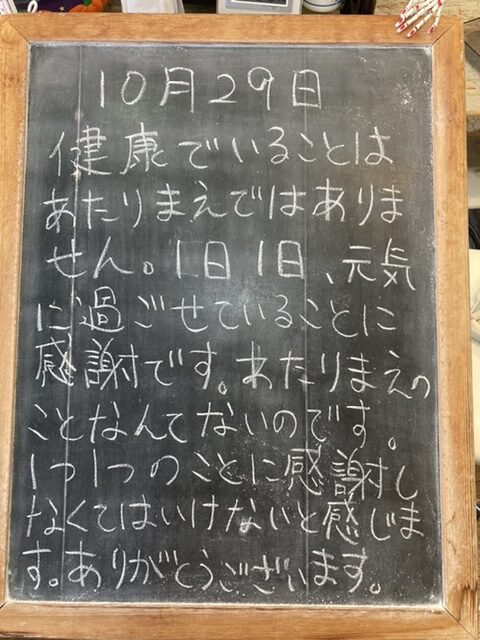 10月29日
健康でいることは
あたりまえではありま
せん。1日1日、元気
に過ごせていることに
感謝です。あたりまえの
ことなんてないのです。
1つ1つのことに感謝し
なくてはいけないと感じま
す。ありがとうございます。